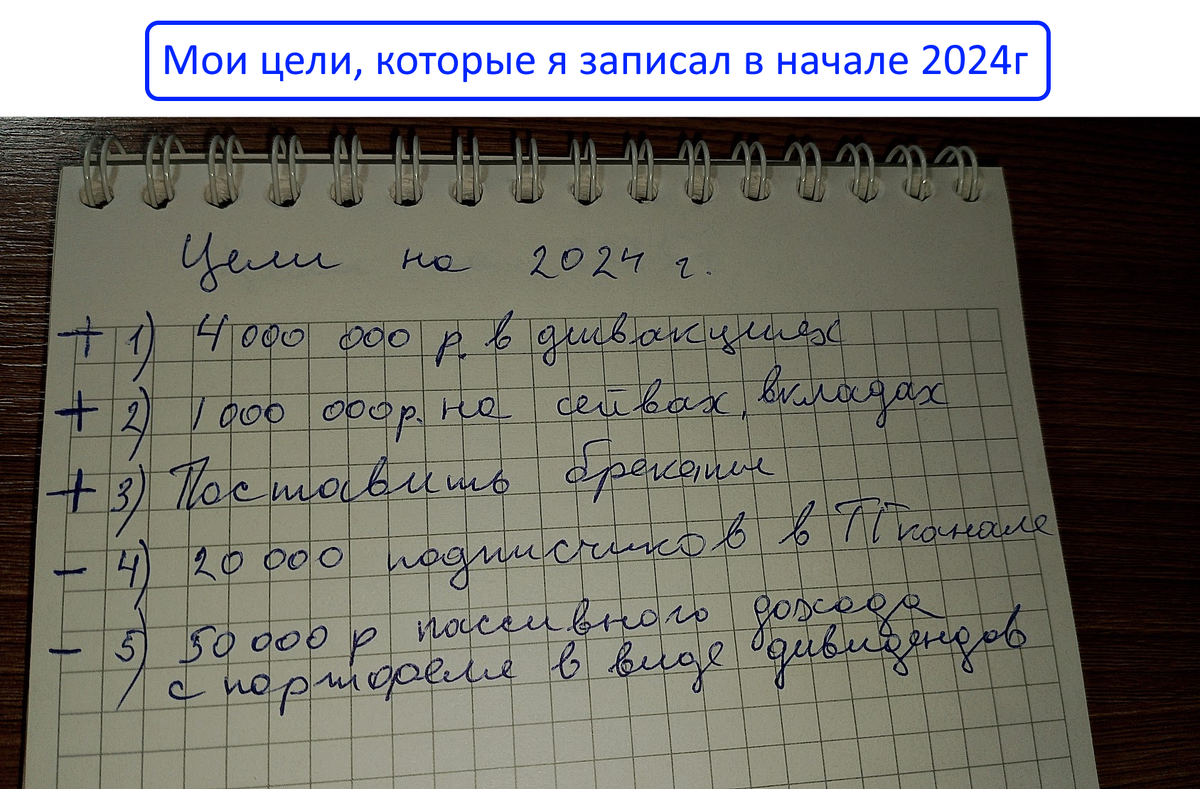 Мои цели, которые я записал в начале 2024г
Цели на 2024 г.
+ 1) 4 000 000 р. в дивакциях
+ 2) 1 000 000р. на сейвах, вкладах
+ 3) Поставить брекеты
- 4) 20 000 подписчиков в ТГ канале
- 5) 50 000 р пассивного дохода
с портфеля в виде дивидендов